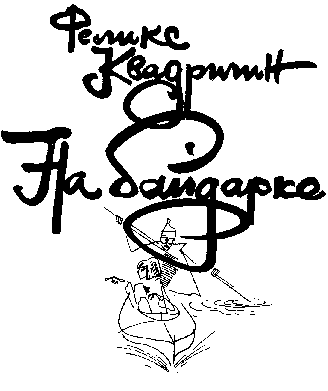 Феликс
Квадригин
На байдарке